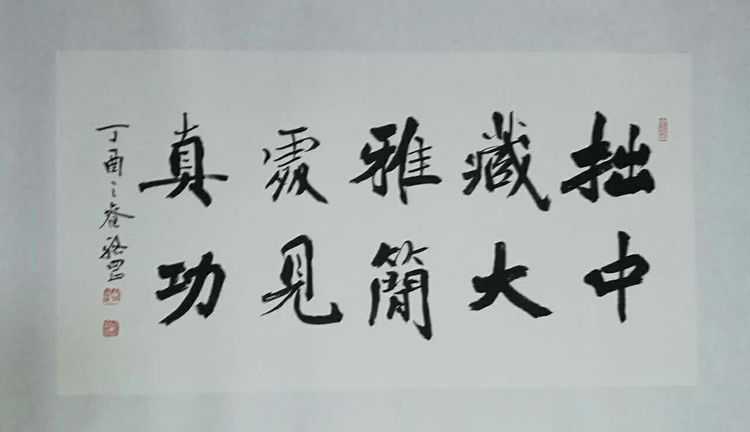 拙中
藏大
雅簡
處見
真功
丁酉之春